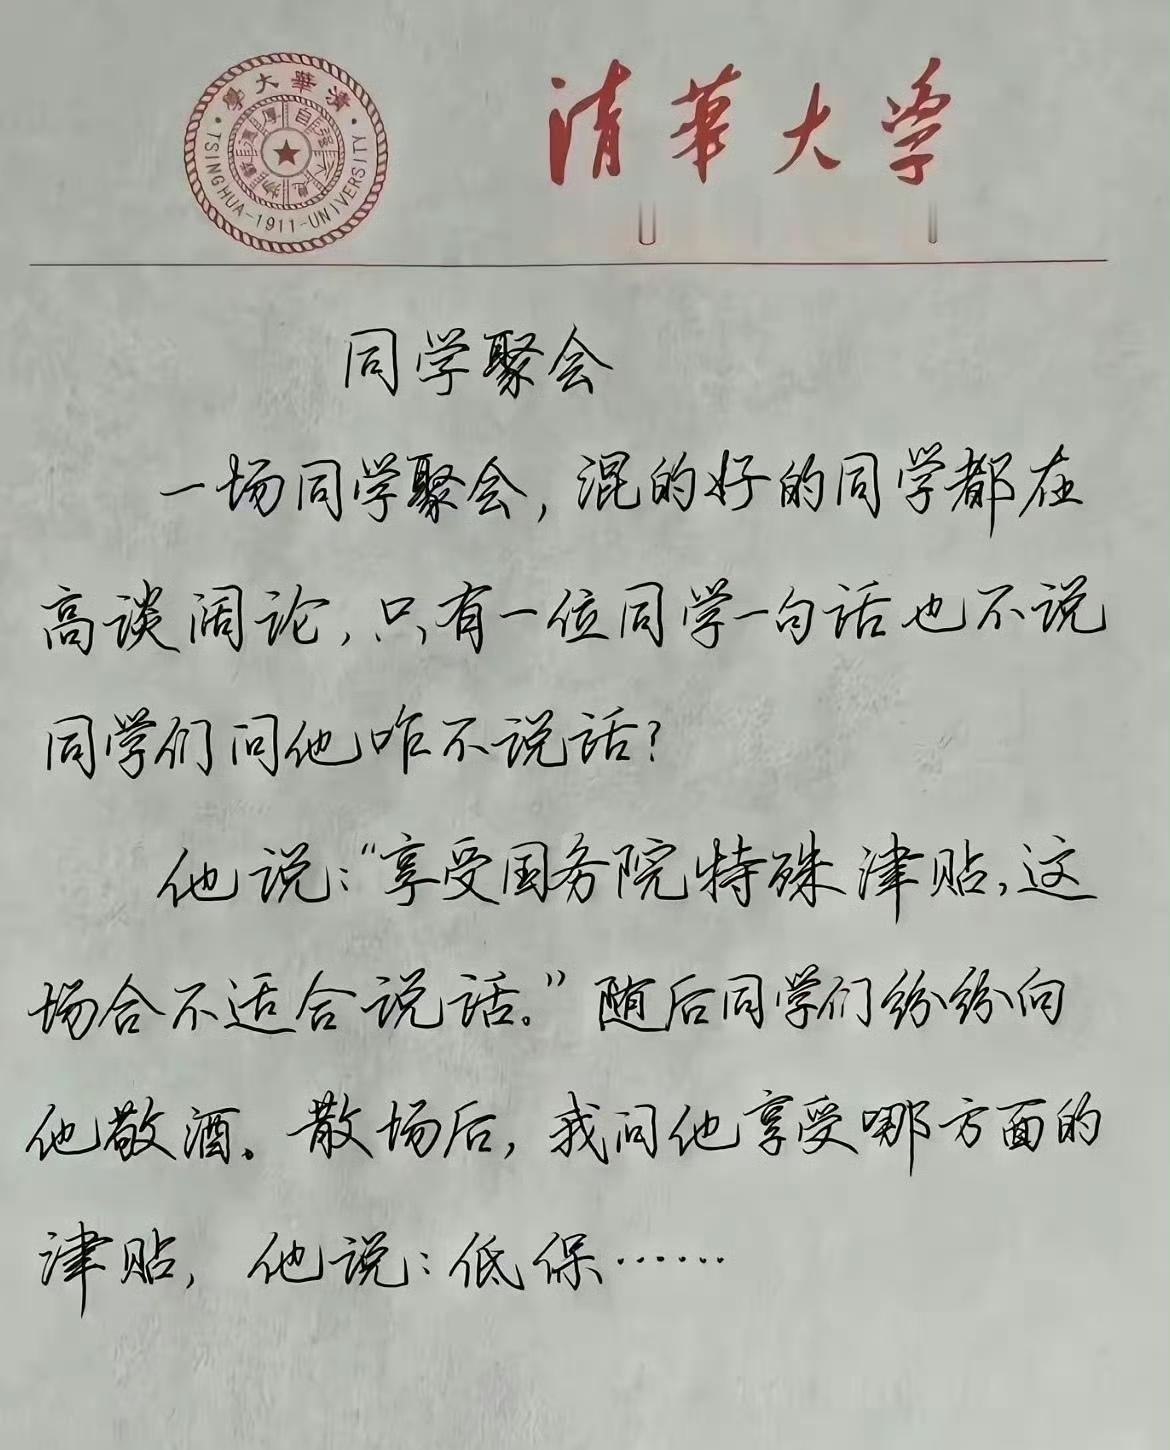 清華大學
TSINGHUA-1911-UNIVERSITY
自强不息
厚德載物
清華大学
同学聚会
一场同学聚会，混的好的同学都在
高谈阔论，只有一位同学一句话也不说
同学们问他咋不说话？
他说：“享受国务院特殊津贴，这
场合不适合说话。”随后同学们纷纷向
他敬酒。散场后，我问他享受哪方面的
津贴，他说：低保……